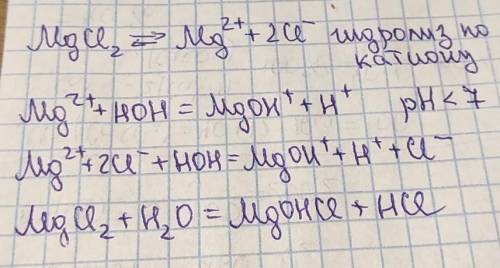 MgCl₂ ⇌ Mg²⁺ + 2Cl⁻ гидролиз по
катиону
Mg²⁺ + HOH = MgOH⁺ + H⁺ pH < 7
Mg²⁺ + 2Cl⁻ + HOH = MgOH⁺ + H⁺ + Cl⁻
MgCl₂ + H₂O = MgOHCl + HCl